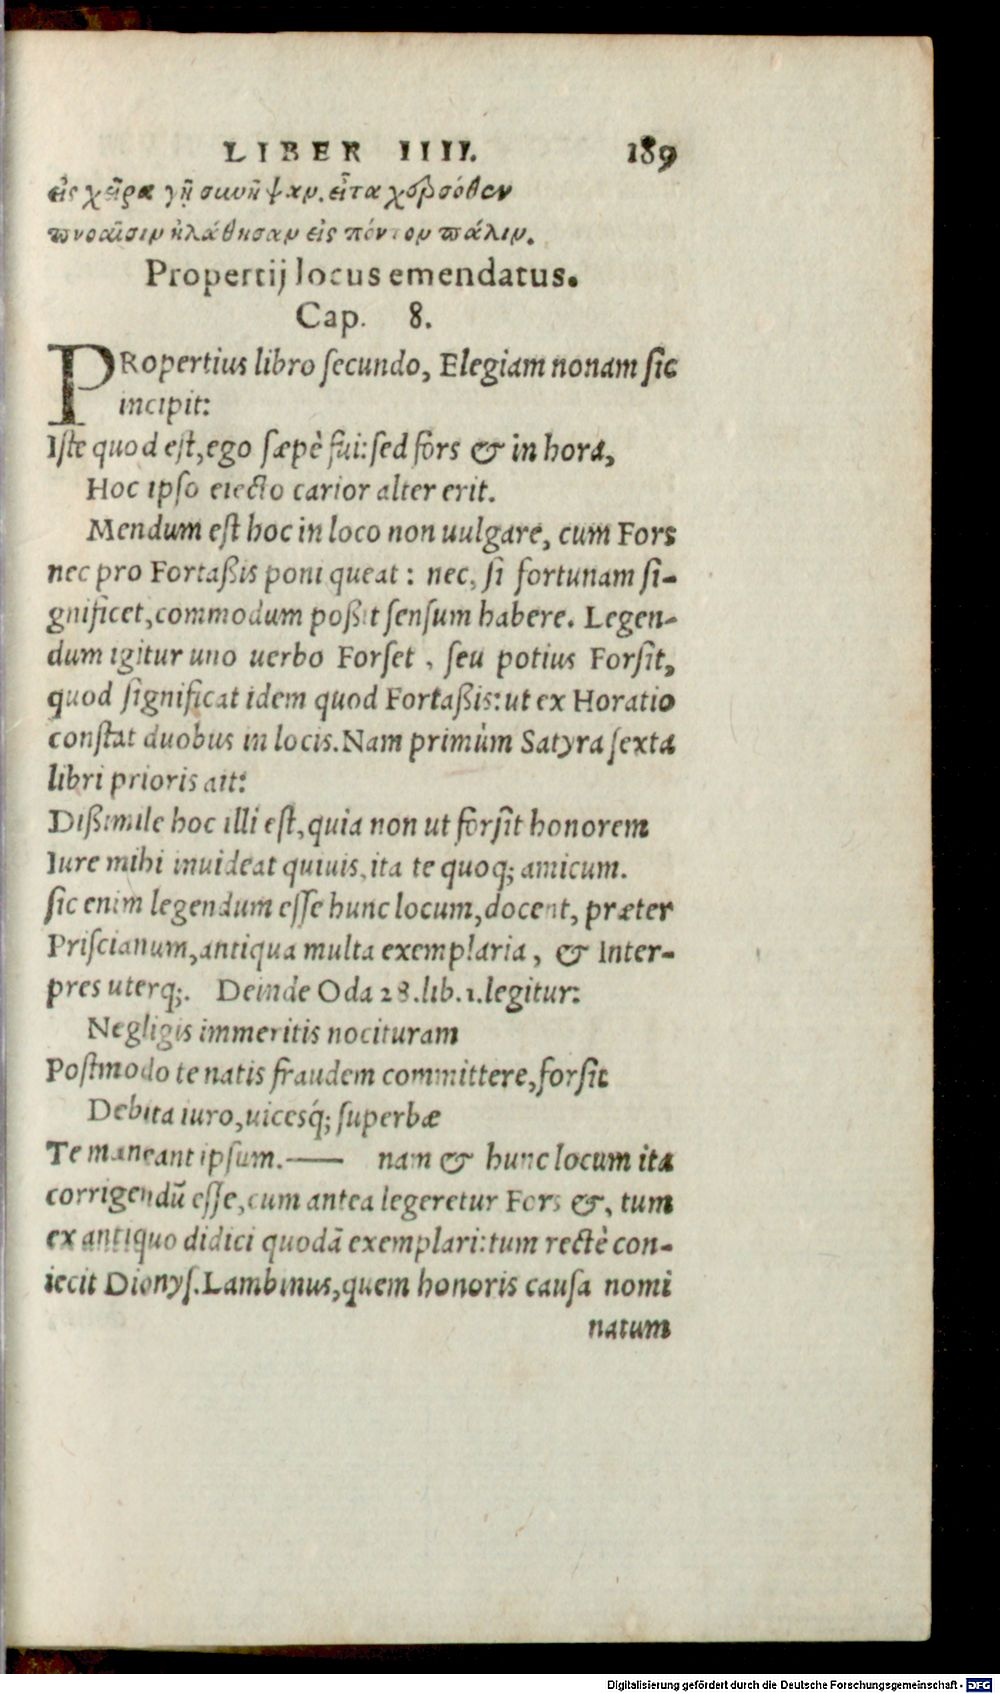 LIBER IIII. 189
εἰς χεῖρα γῇ συνῆψαν. εἶτα χερσόθεν
πνοαῖσιν ἠλάθησαν εἰς πόντον πάλιν.
Propertij locus emendatus.
Cap. 8.
PRopertius libro ſecundo, Elegiam nonam ſic
incipit:
Iſte quod eſt, ego ſæpè fui: ſed fors & in hora,
Hoc ipſo eiecto carior alter erit.
Mendum eſt hoc in loco non uulgare, cum Fors
nec pro Fortaßis poni queat: nec, ſi fortunam ſi-
gnificet, commodum poßit ſenſum habere. Legen-
dum igitur uno uerbo Forſet, ſeu potius Forſit,
quod ſignificat idem quod Fortaßis: ut ex Horatio
conſtat duobus in locis. Nam primùm Satyra ſexta
libri prioris ait:
Dißimile hoc illi eſt, quia non ut forſit honorem
Iure mihi inuideat quiuis, ita te quoq; amicum.
ſic enim legendum eſſe hunc locum, docent, præter
Priſcianum, antiqua multa exemplaria, & Inter-
pres uterq;. Deinde Oda 28. lib. 1. legitur:
Negligis immeritis nocituram
Poſtmodo te natis fraudem committere, forſit
Debita iura, uicesq́; ſuperbæ
Te maneant ipſum.—— nam & hunc locum ita
corrigendū eſſe, cum antea legeretur Fors &, tum
ex antiquo didici quodā exemplari: tum rectè con-
iecit Dionyſ. Lambinus, quem honoris cauſa nomi
natum
Digitalisierung gefördert durch die Deutsche Forschungsgemeinschaft - DFG